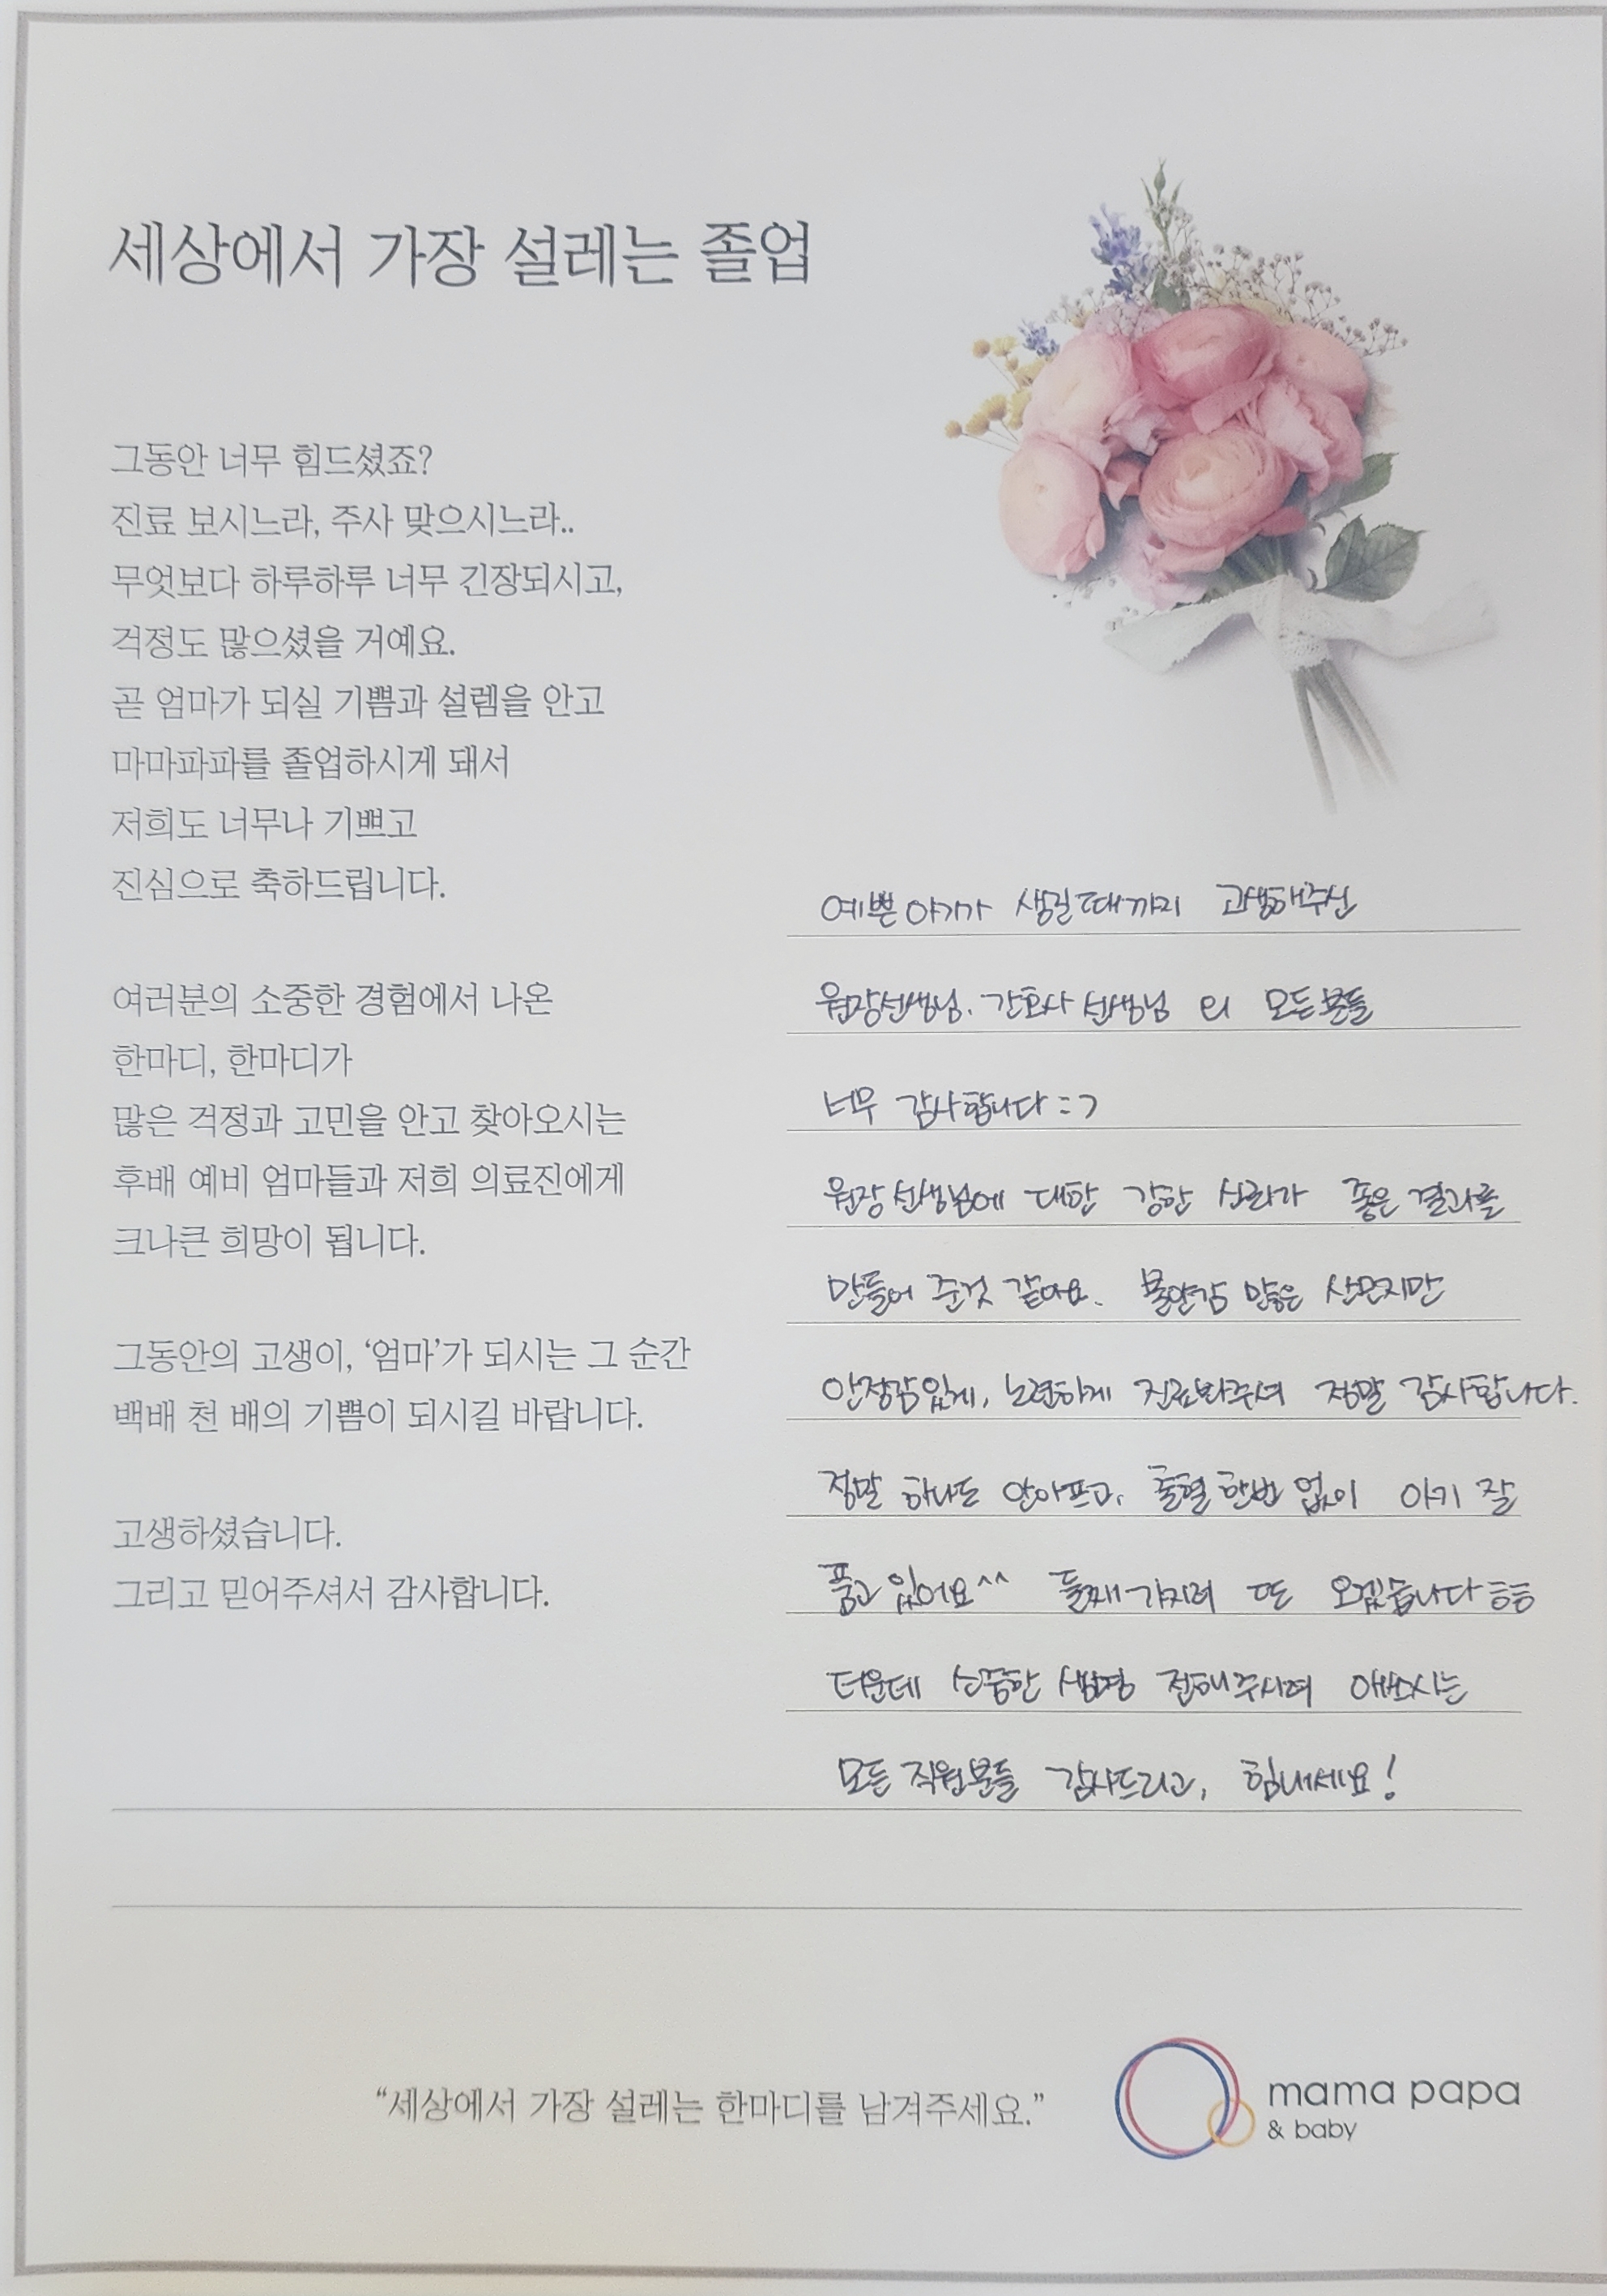 세상에서 가장 설레는 졸업
그동안 너무 힘드셨죠?
진료 보시느라, 주사 맞으시느라..
무엇보다 하루하루 너무 긴장되시고,
걱정도 많으셨을 거예요.
곧 엄마가 되실 기쁨과 설렘을 안고
마마파파를 졸업하시게 돼서
저희도 너무나 기쁘고
진심으로 축하드립니다.
여러분의 소중한 경험에서 나온
한마디, 한마디가
많은 걱정과 고민을 안고 찾아오시는
후배 예비 엄마들과 저희 의료진에게
크나큰 희망이 됩니다.
그동안의 고생이, ‘엄마’가 되시는 그 순간
백배 천 배의 기쁨이 되시길 바랍니다.
고생하셨습니다.
그리고 믿어주셔서 감사합니다.
예쁜 아가가 생길때까지 고생해주신
원장선생님. 간호사 선생님 외 모든분들
너무 감사합니다 =)
원장선생님에 대한 강한 신뢰가 좋은 결과를
만들어 준것 같아요. 불안감 많은 산모지만
안정감있게, 노련하게 진료봐주셔 정말 감사합니다.
정말 하나도 안아프고, 출혈 한번 없이 아기 잘
품고 있어요^^ 둘째 가지러 또 오겠습니다 ㅎㅎ
더운데 소중한 생명 전해주시려 애쓰시는
모든 직원분들 감사드리고, 힘내세요!
“세상에서 가장 설레는 한마디를 남겨주세요.”
mama papa
& baby